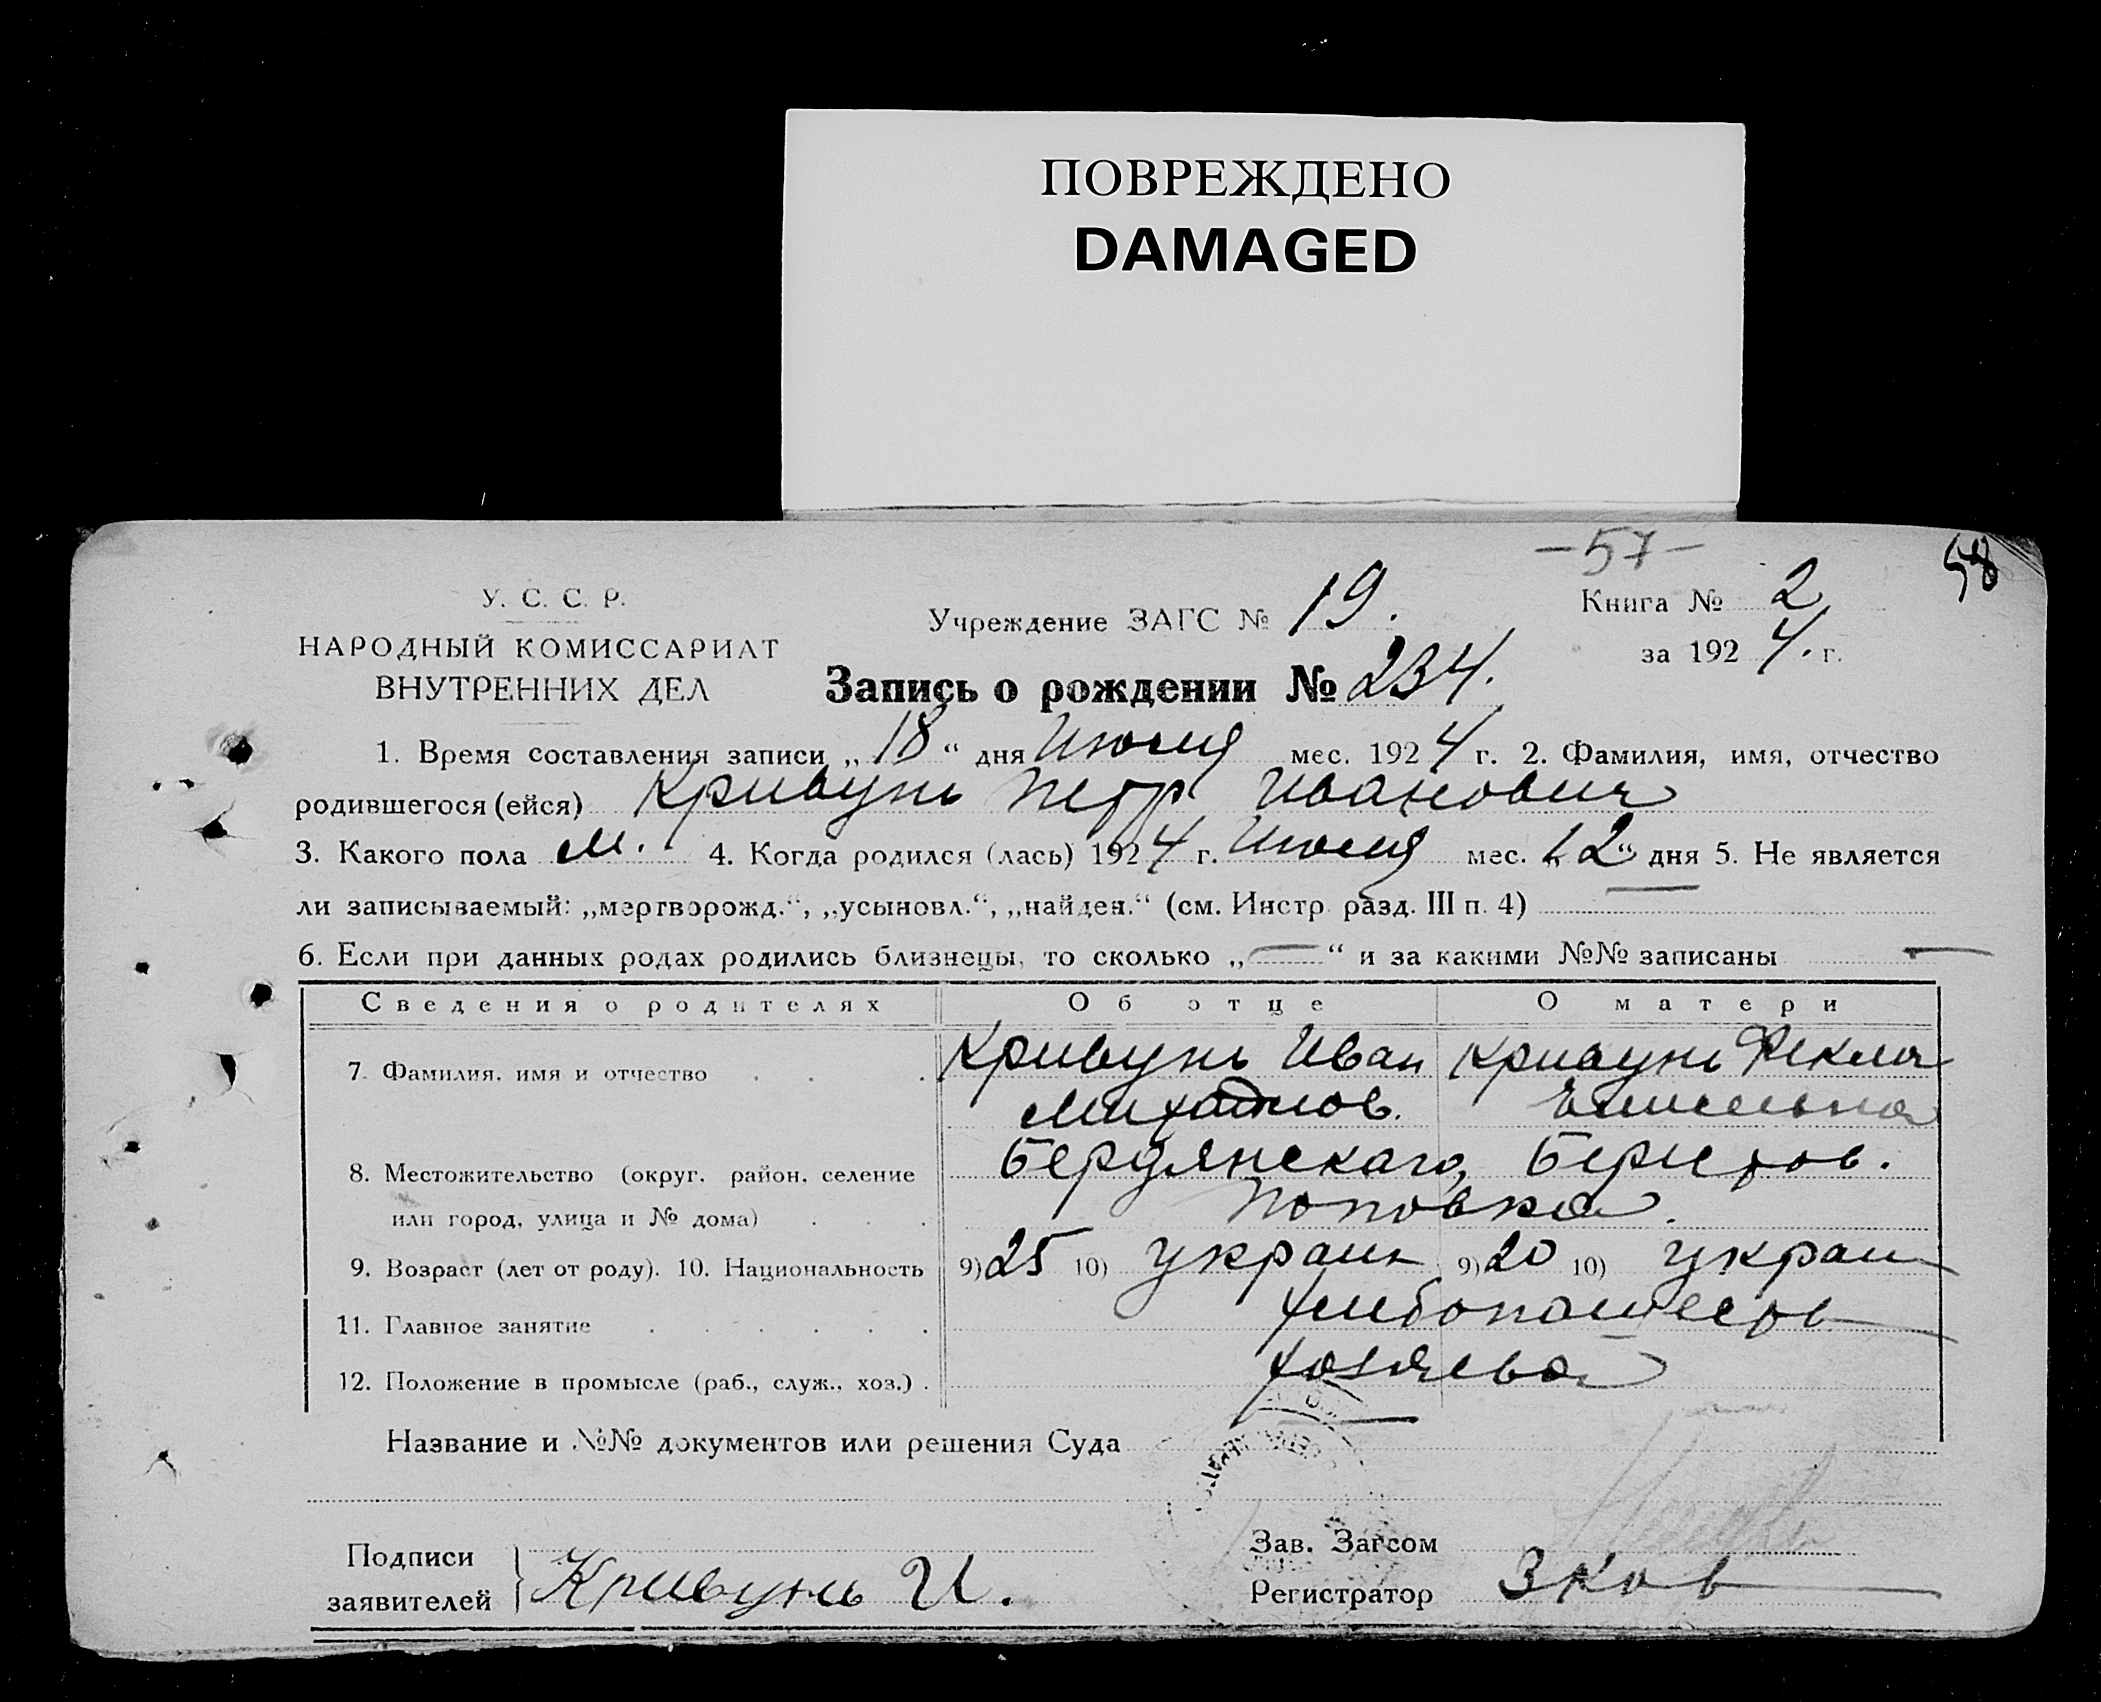 ПОВРЕЖДЕНО
DAMAGED
— 57 —
58
У. С. С. Р.
НАРОДНЫЙ КОМИССАРИАТ
ВНУТРЕННИХ ДЕЛ
Учреждение ЗАГС № 19.
Книга № 2
за 1924. г.
Запись о рождении № 234.
1. Время составления записи „18“ дня Июля мес. 1924 г. 2. Фамилия, имя, отчество
родившегося (ейся) Кривунь Петр Иванович
3. Какого пола м. 4. Когда родился (лась) 1924 г. Июля мес. „12“ дня 5. Не является
ли записываемый: „мертворожд.“, „усыновл.“, „найден.“ (см. Инстр. разд. III п. 4) —
6. Если при данных родах родились близнецы, то сколько „—“ и за какими №№ записаны —
Сведения о родителях Об отце О матери
7. Фамилия, имя и отчество Кривунь Иван Кривунь Фекла
Михайлов.
8. Местожительство (округ, район, селение Бердянского, Берестов.
или город, улица и № дома) Поповка.
9. Возраст (лет от роду). 10. Национальность 9) 25 10) украин 9) 20 10) украин
11. Главное занятие хлебопашеств
12. Положение в промысле (раб., служ., хоз.) хозяева
Название и №№ документов или решения Суда —
Подписи
заявителей } Кривунь И.
Зав. Загсом
Регистратор